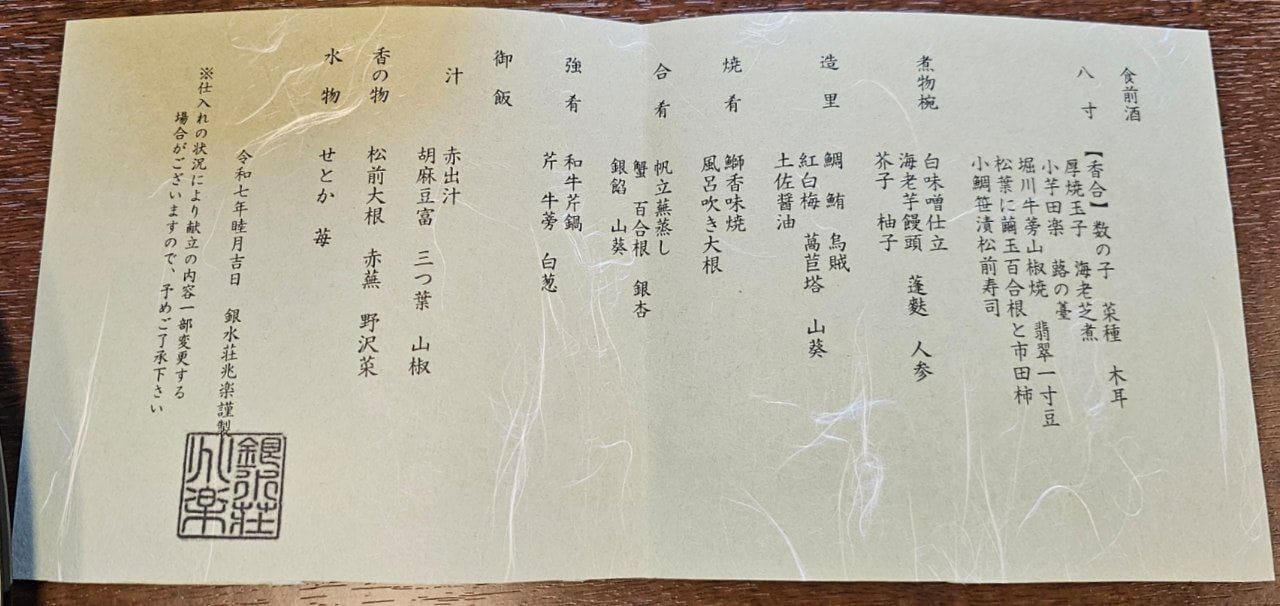 食前酒
八寸
【香合】数の子 菜種 木耳
厚焼玉子 海老芝煮
小芋田楽 蕗の薹
堀川牛蒡山椒焼 翡翠一寸豆
松葉に繭玉百合根と市田柿
小鯛笹漬松前寿司
煮物椀
白味噌仕立
海老芋饅頭 蓬麩 人参
芥子 柚子
造里
鯛 鮪 烏賊
紅白梅 萵苣塔 山葵
土佐醤油
焼肴
鰤香味焼
風呂吹き大根
合肴
帆立蕪蒸し
蟹 百合根 銀杏
銀餡 山葵
強肴
和牛芹鍋
芹 牛蒡 白葱
御飯
汁
赤出汁
胡麻豆富 三つ葉 山椒
香の物
松前大根 赤蕪 野沢菜
水物
せとか 苺
令和七年睦月吉日 銀水荘兆楽謹製
※仕入れの状況により献立の内容一部変更する
場合がございますので、予めご了承下さい
銀水荘
兆楽